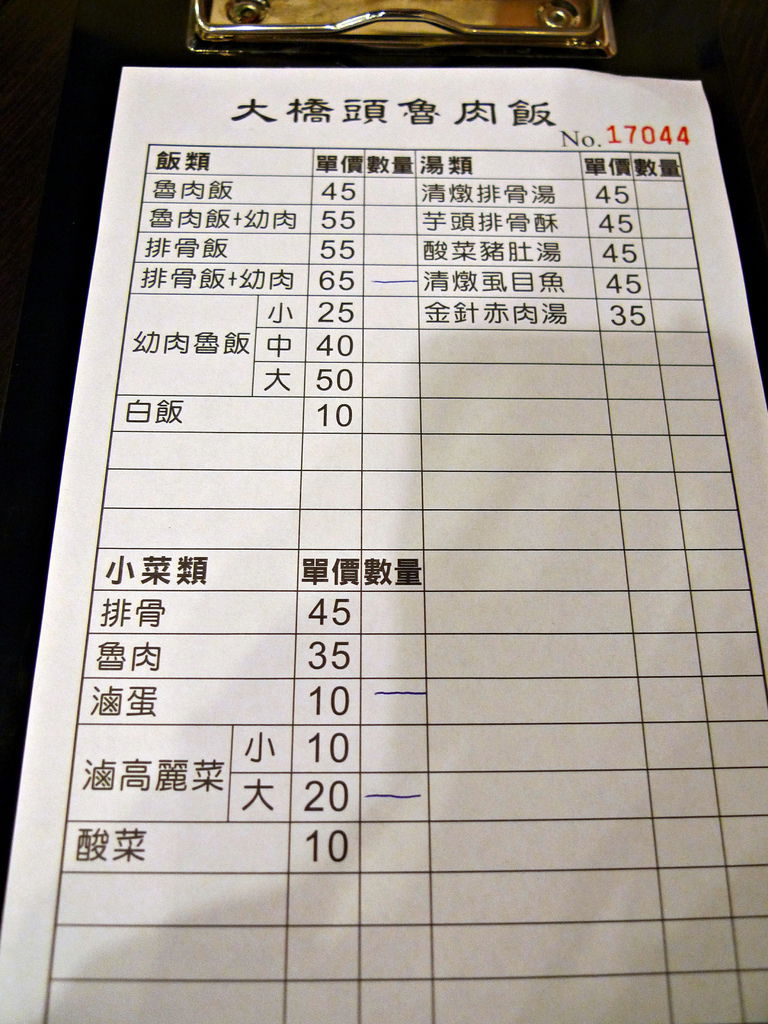 大橋頭魯肉飯
No. 17044
飯類 單價 數量 湯類 單價 數量
魯肉飯 45 清燉排骨湯 45
魯肉飯+幼肉 55 芋頭排骨酥 45
排骨飯 55 酸菜豬肚湯 45
排骨飯+幼肉 65 一 清燉虱目魚 45
幼肉魯飯 小 25 金針赤肉湯 35
中 40
大 50
白飯 10
小菜類 單價 數量
排骨 45
魯肉 35
滷蛋 10 一
滷高麗菜 小 10
大 20 一
酸菜 10